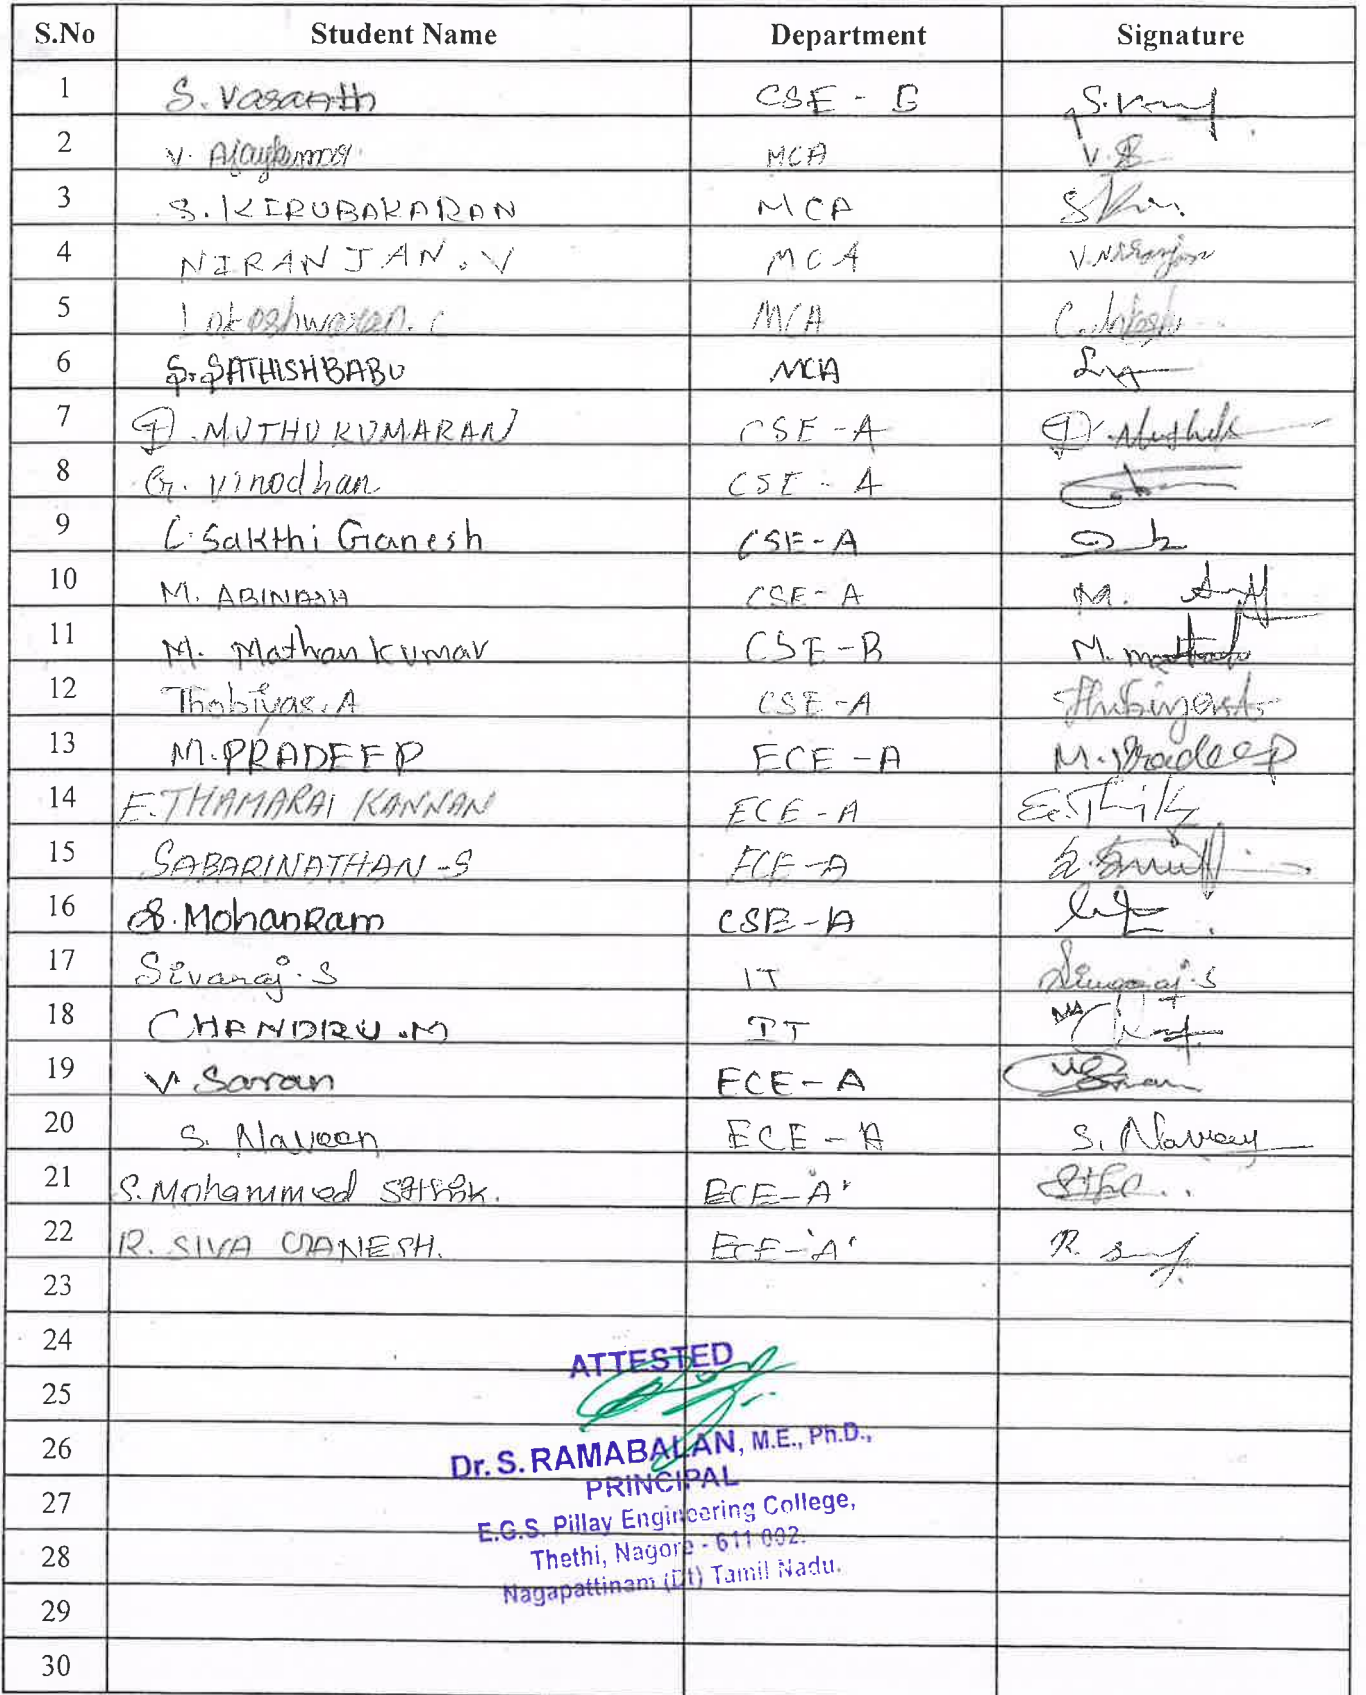 S.No Student Name Department Signature
1 S. Vasanth CSE - B
2 V. Ajaykumar MCA
3 S. KIRUBAKARAN MCA
4 NIRANJAN. V MCA V. Niranjan
5 Lokeshwaran. C MCA
6 S. SATHISHBABU MCA
7 D. MUTHUKUMARAN CSE - A
8 G. Vinodhan CSE - A
9 C. Sakthi Ganesh CSE - A
10 M. ABINASH CSE - A M.
11 M. Mathan kumar CSE - B M.
12 Thabiyas. A CSE - A
13 M. PRADEEP ECE - A M. Pradeep
14 E. THAMARAI KANNAN ECE - A
15 SABARINATHAN - S ECE - A
16 S. MohanRam CSE - A
17 Sivaraj. S IT Sivaraj. S
18 CHANDRU . M IT
19 V. Saran ECE - A
20 S. Naveen ECE - A S. Naveen
21 S. Mohammed ECE - 'A'
22 R. SIVA GANESH. ECE - 'A' R.
23
24
ATTESTED
25
26 Dr. S. RAMABALAN, M.E., Ph.D.,
PRINCIPAL
27 E.G.S. Pillay Engineering College,
28 Thethi, Nagore - 611 002.
Nagapattinam (Dt) Tamil Nadu.
29
30